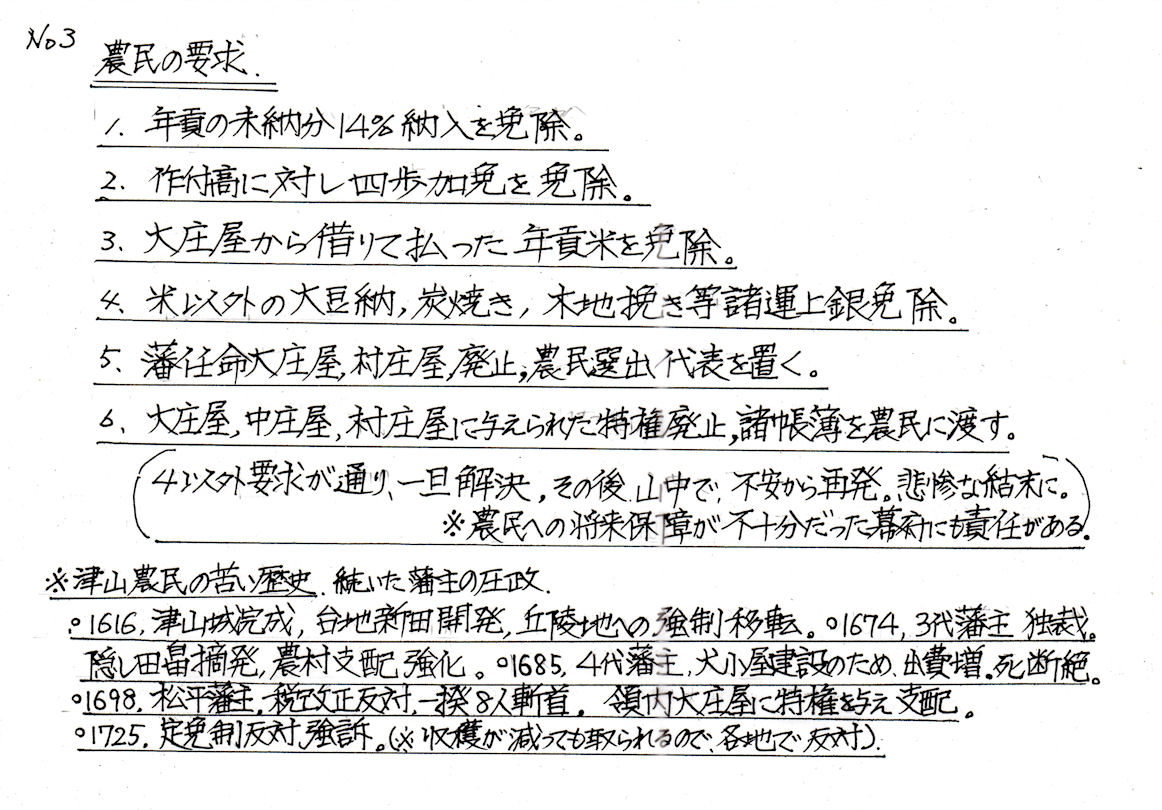 No3
農民の要求.
1. 年貢の未納分14%納入を免除。
2. 作付高に対し四歩加免を免除。
3. 大庄屋から借りて払った年貢米を免除。
4. 米以外の大豆納,炭焼き,木地挽き等諸運上銀免除。
5. 藩任命大庄屋,村庄屋,廃止,農民選出代表を置く。
6. 大庄屋,中庄屋,村庄屋に与えられた特権廃止,諸帳簿を農民に渡す。
(4以外要求が通り、一旦解決,その後山中で、不安から再発。悲惨な結末に。
※農民への将来保障が不十分だった幕府にも責任がある。)
※津山農民の苦い歴史.続いた藩主の圧政.
○1616.津山城完成,台地新田開発,丘陵地への強制移転。○1674,3代藩主独裁。
隠し田畠摘発,農村支配強化。○1685,4代藩主,犬小屋建設のため出費増。死断絶。
○1698.松平藩主.税改正反対.一揆8人斬首. 領内大庄屋に特権を与え支配。
○1725.定免制反対強訴。(※収穫が減っても取られるので、各地で反対).